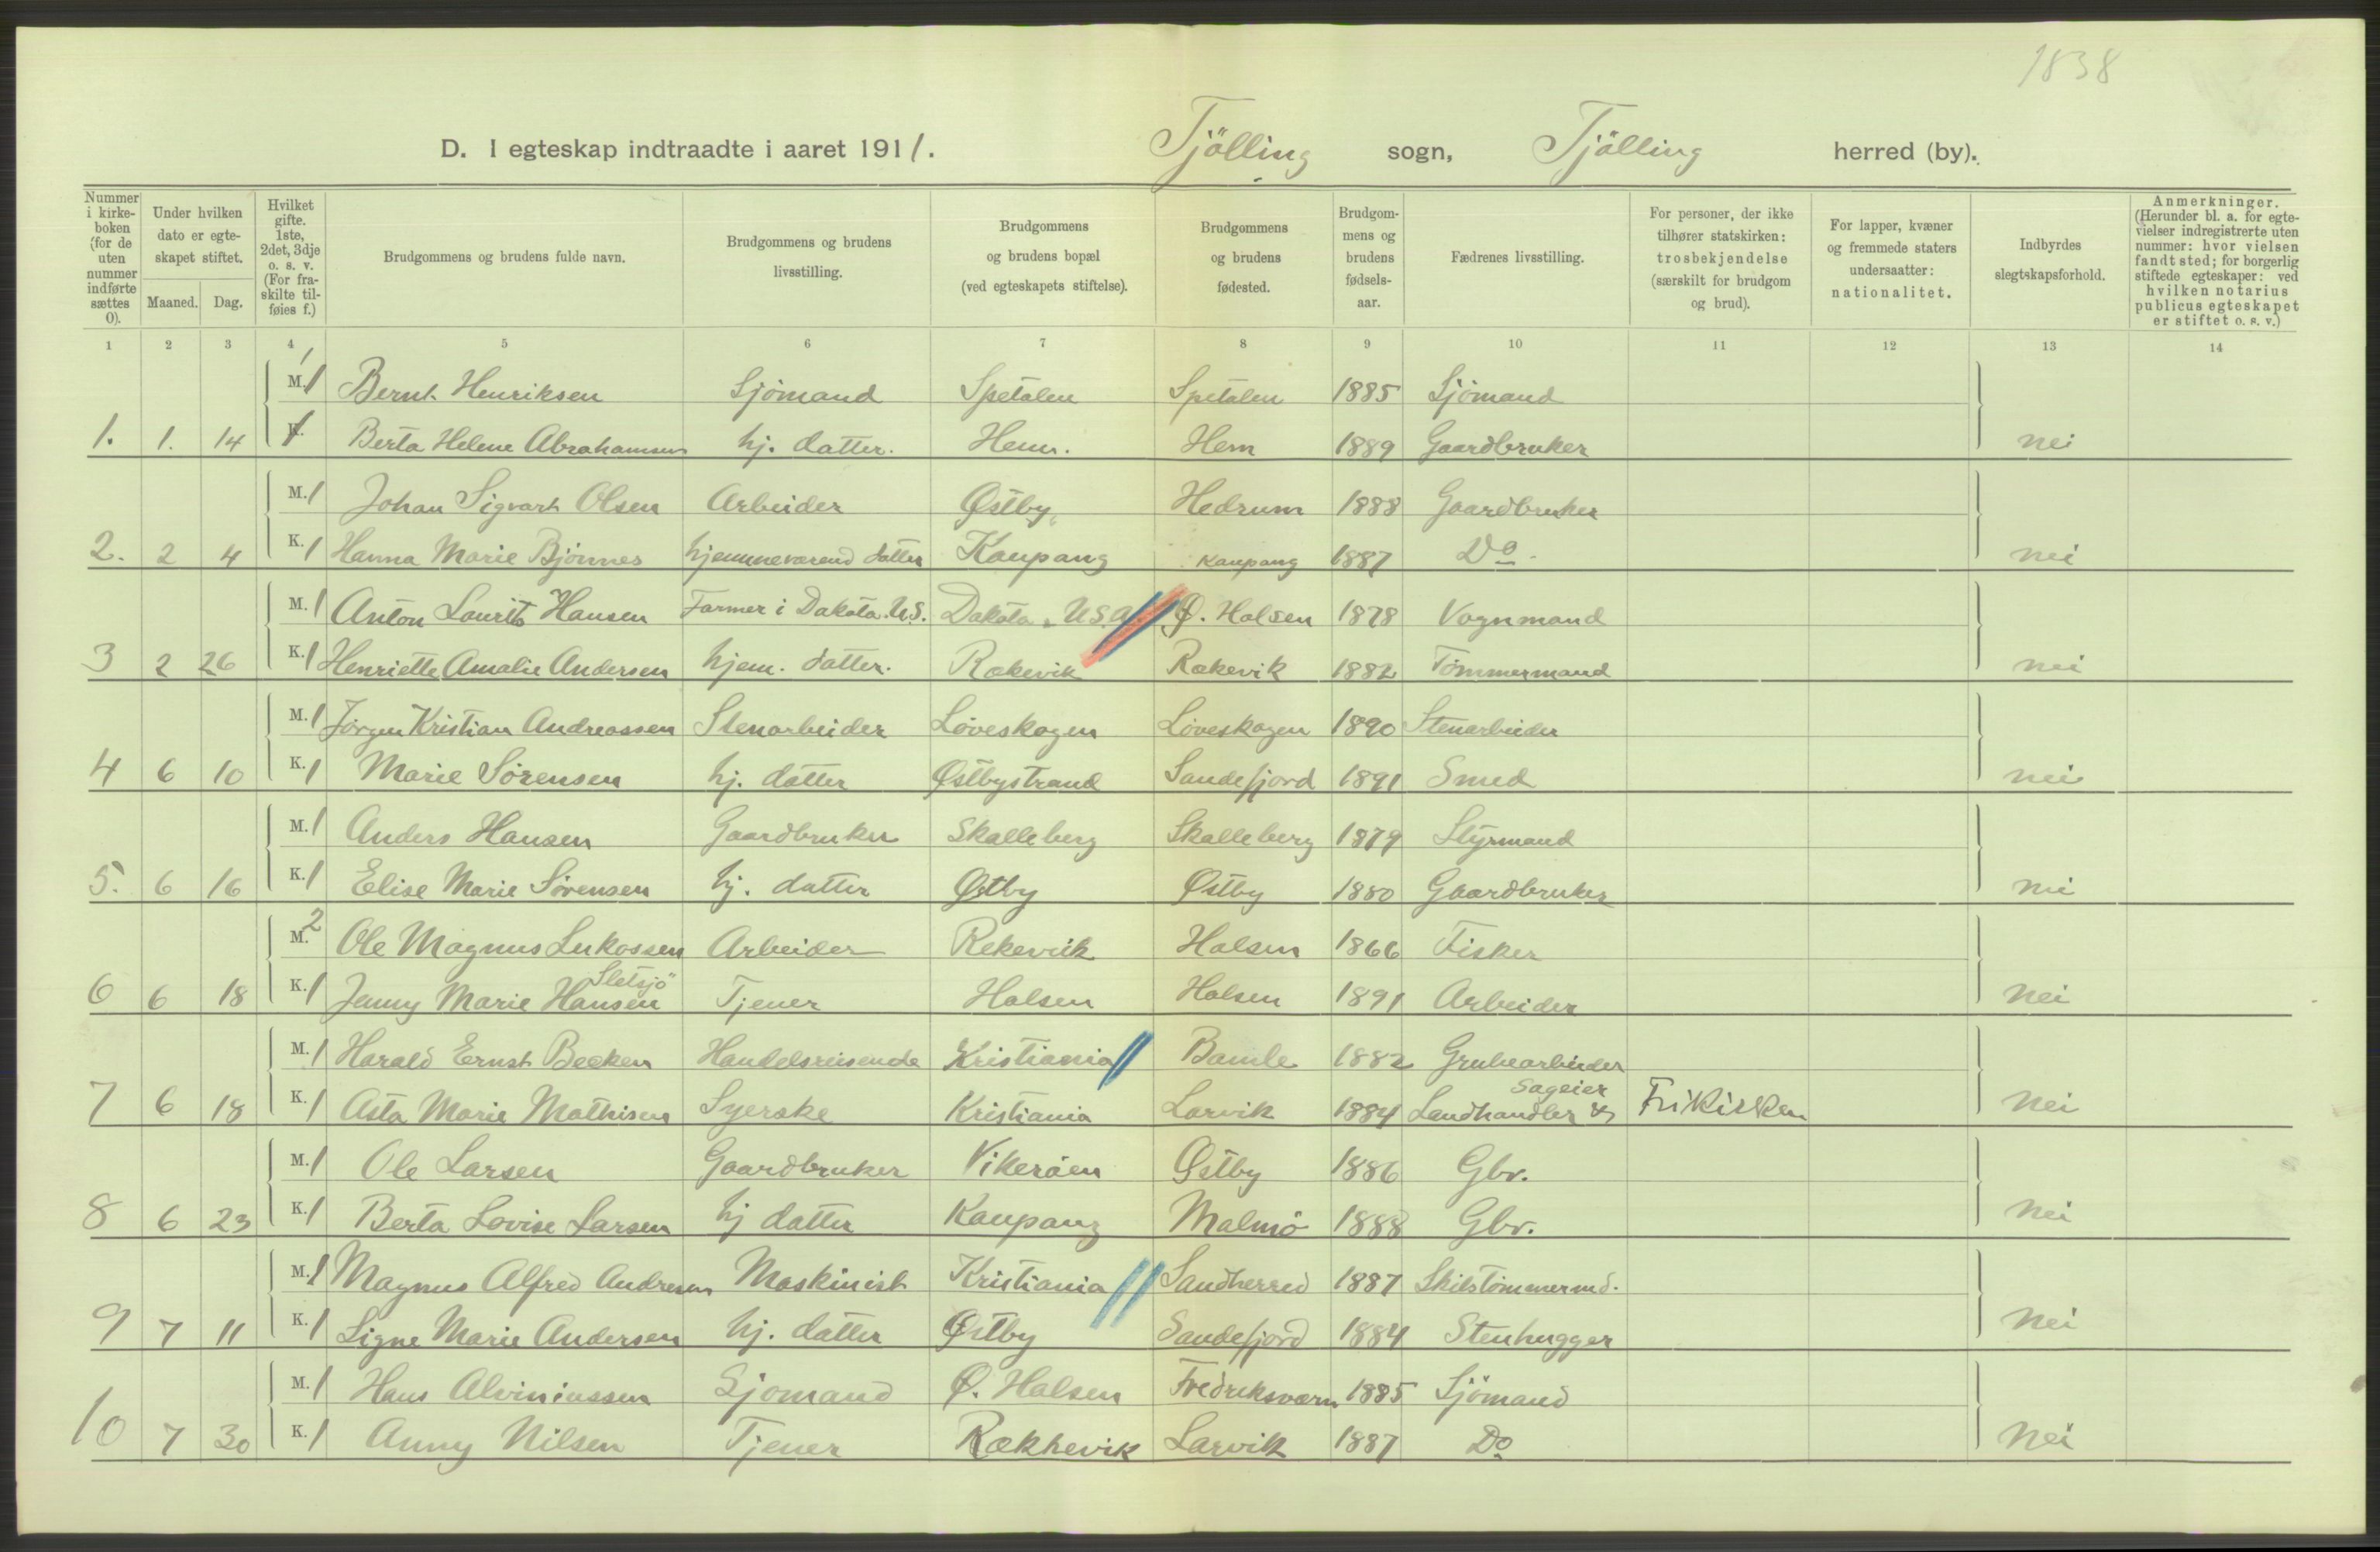 1838
D. I egteskap indtraadte i aaret 1911. Tjölling sogn, Tjölling herred (by).
Nummer i kirke-boken (for de uten nummer indførte sættes 0). Under hvilken dato er egte-skapet stiftet. Maaned. Dag. Hvilket gifte. 1ste, 2det, 3dje o. s. v. (For fra-skilte til-føies f.) Brudgommens og brudens fulde navn. Brudgommens og brudens livsstilling. Brudgommens og brudens bopæl (ved egteskapets stiftelse). Brudgommens og brudens fødested. Brudgom-mens og brudens fødsels-aar. Fædrenes livsstilling. For personer, der ikke tilhører statskirken: trosbekjendelse (særskilt for brudgom og brud). For lapper, kvæner og fremmede staters undersaatter: nationalitet. Indbyrdes slegtskapsforhold. Anmerkninger. (Herunder bl. a. for egte-vielser indregistrerte uten nummer: hvor vielsen fandt sted; for borgerlig stiftede egteskaper: ved hvilken notarius publicus egteskapet er stiftet o. s. v.)
1 2 3 4 5 6 7 8 9 10 11 12 13 14
M. 1 Bernt Henriksen Sjömand Spetalen Spetalen 1885 Sjömand
1. 1. 14 K. 1 Berta Helene Abrahamsen hj. datter. Hem. Hem 1889 Gaardbruker nei
M. 1 Johan Sigvart Olsen Arbeider Østby Hedrum 1888 Gaardbruker
2. 2 4 K. 1 Hanna Marie Bjönnes hjemmeværend datter Kaupang Kaupang 1887 Do. nei
M. 1 Anton Laurits Hansen Farmer i Dakota. U.S. Dakota. U.S.A. Ø. Halsen 1878 Vognmand
3 2 26 K. 1 Henriette Amalie Andersen hjem. datter. Rækevik Rækevik 1882 Tömmermand nei
M. 1 Jörgen Kristian Andreassen Stenarbeider Löveskogen Löveskogen 1890 Stenarbeider
4 6 10 K. 1 Marie Sörensen hj. datter Østbystrand Sandefjord 1891 Smed nei
M. 1 Anders Hansen Gaardbruker Skalleberg Skalleberg 1879 Styrmand
5. 6 16 K. 1 Elise Marie Sörensen hj. datter Østby Østby 1880 Gaardbruker nei
M. 2 Ole Magnus Lukassen Arbeider Rekevik Halsen 1866 Fisker
Sletsjö
6 6 18 K. 1 Jenny Marie Hansen Tjener Halsen Halsen 1891 Arbeider nei
M. 1 Harald Ernst Becken Handelsreisende Kristiania Bamle 1882 Grubearbeider
Sageier
7 6 18 K. 1 Asta Marie Mathisen Syerske Kristiania Larvik 1884 Landhandler & Frikirken nei
M. 1 Ole Larsen Gaardbruker Vikeröen Østby 1886 Gbr.
8 6 23 K. 1 Berta Lovise Larsen hj datter Kaupang Malmö 1888 Gbr. nei
M. 1 Magnus Alfred Andresen Maskinist Kristiania Sandherred 1887 Skibstömmermd.
9 7 11 K. 1 Signe Marie Andersen hj. datter Østby Sandefjord 1884 Stenhugger nei
M. 1 Hans Alviniussen Sjömand Ø. Halsen Fredriksværn 1885 Sjömand
10 7 30 K. 1 Anny Nilsen Tjener Rækkevik Larvik 1887 Do nei